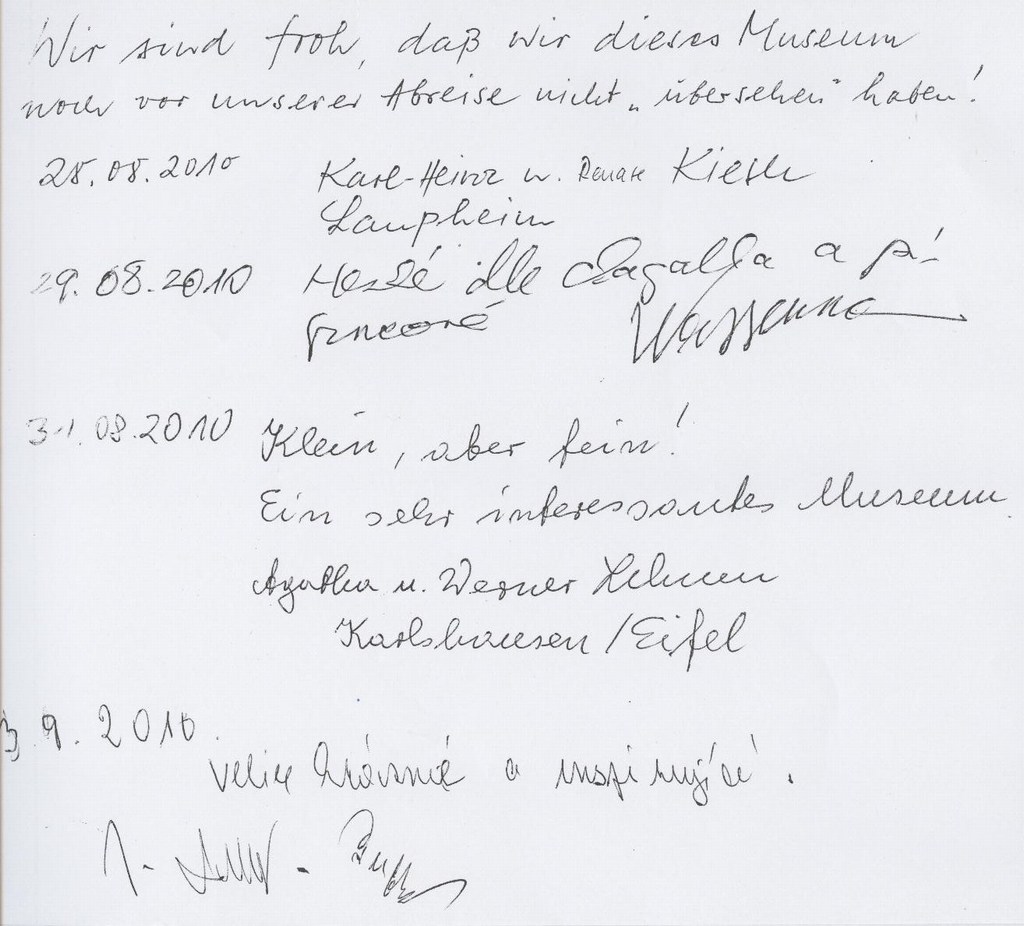 Wir sind froh, daß wir dieses Museum
noch vor unserer Abreise nicht „übersehen" haben!
28.08.2010 Karl-Heinz u. Renate
Laupheim
29.08.2010 Hezké dle Chagalla a
31.08.2010 Klein, aber fein!
Ein sehr interessantes Museum
Agatha u. Werner
Karlshausen / Eifel
3.9.2010
velice krásné a inspirující.